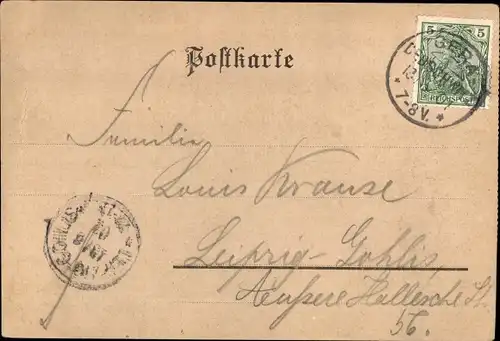 Postkarte
5 5
REICHSPOST
GERA
7-8 V.
Familie
Louis Krause
Leipzig-Gohlis,
Äußere Hallesche St.
56.